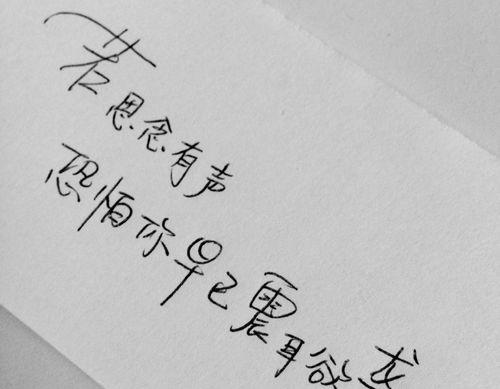 若思念有声
恐怕你早已震耳欲聋